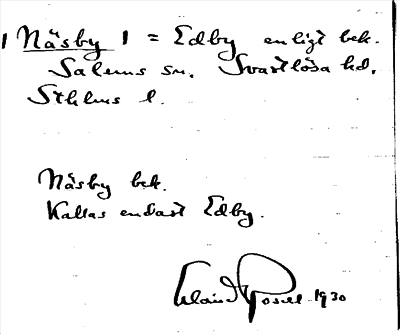 1 Näsby 1 = Edby enligt bek.
Salems sn. Svartlösa hd.
Sthlms l.
Näsby bek.
Kallas endast Edby.
1930